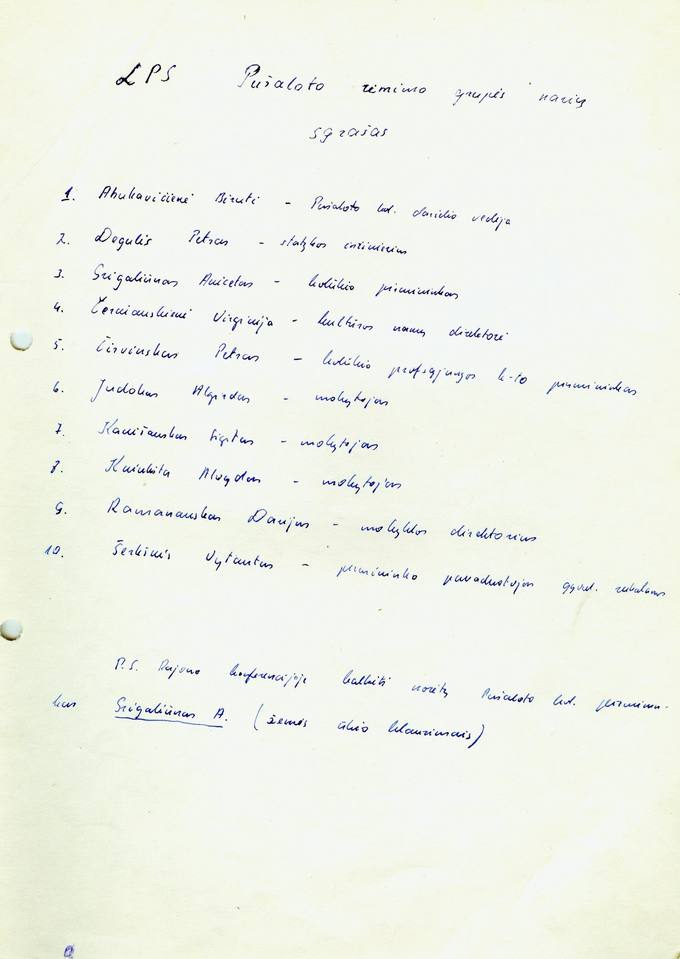 LPS Pušaloto rėmimo grupės narių
sąrašas
1. Birutė - Pušaloto kol. darželio vedėja
2. Degulis Petras - statybos inžinierius
3. Grigaliūnas Anicetas - kolūkio pirmininkas
4. Černiauskienė Virginija - kultūros namų direktorė
5. Čirvinskas Petras - kolūkio profsąjungos k-to pirmininkas
6. Judokas Algirdas - mokytojas
7. Kanišauskas Sigitas - mokytojas
8. - mokytojas
9. Ramanauskas Danijus - mokyklos direktorius
10. Vytautas - pirmininko pavaduotojas gyvul. reikalams
P.S. Rajono konferencijoje kalbėti norėtų Pušaloto kol. pirminin-
kas Grigaliūnas A. (žemės ūkio klausimais)